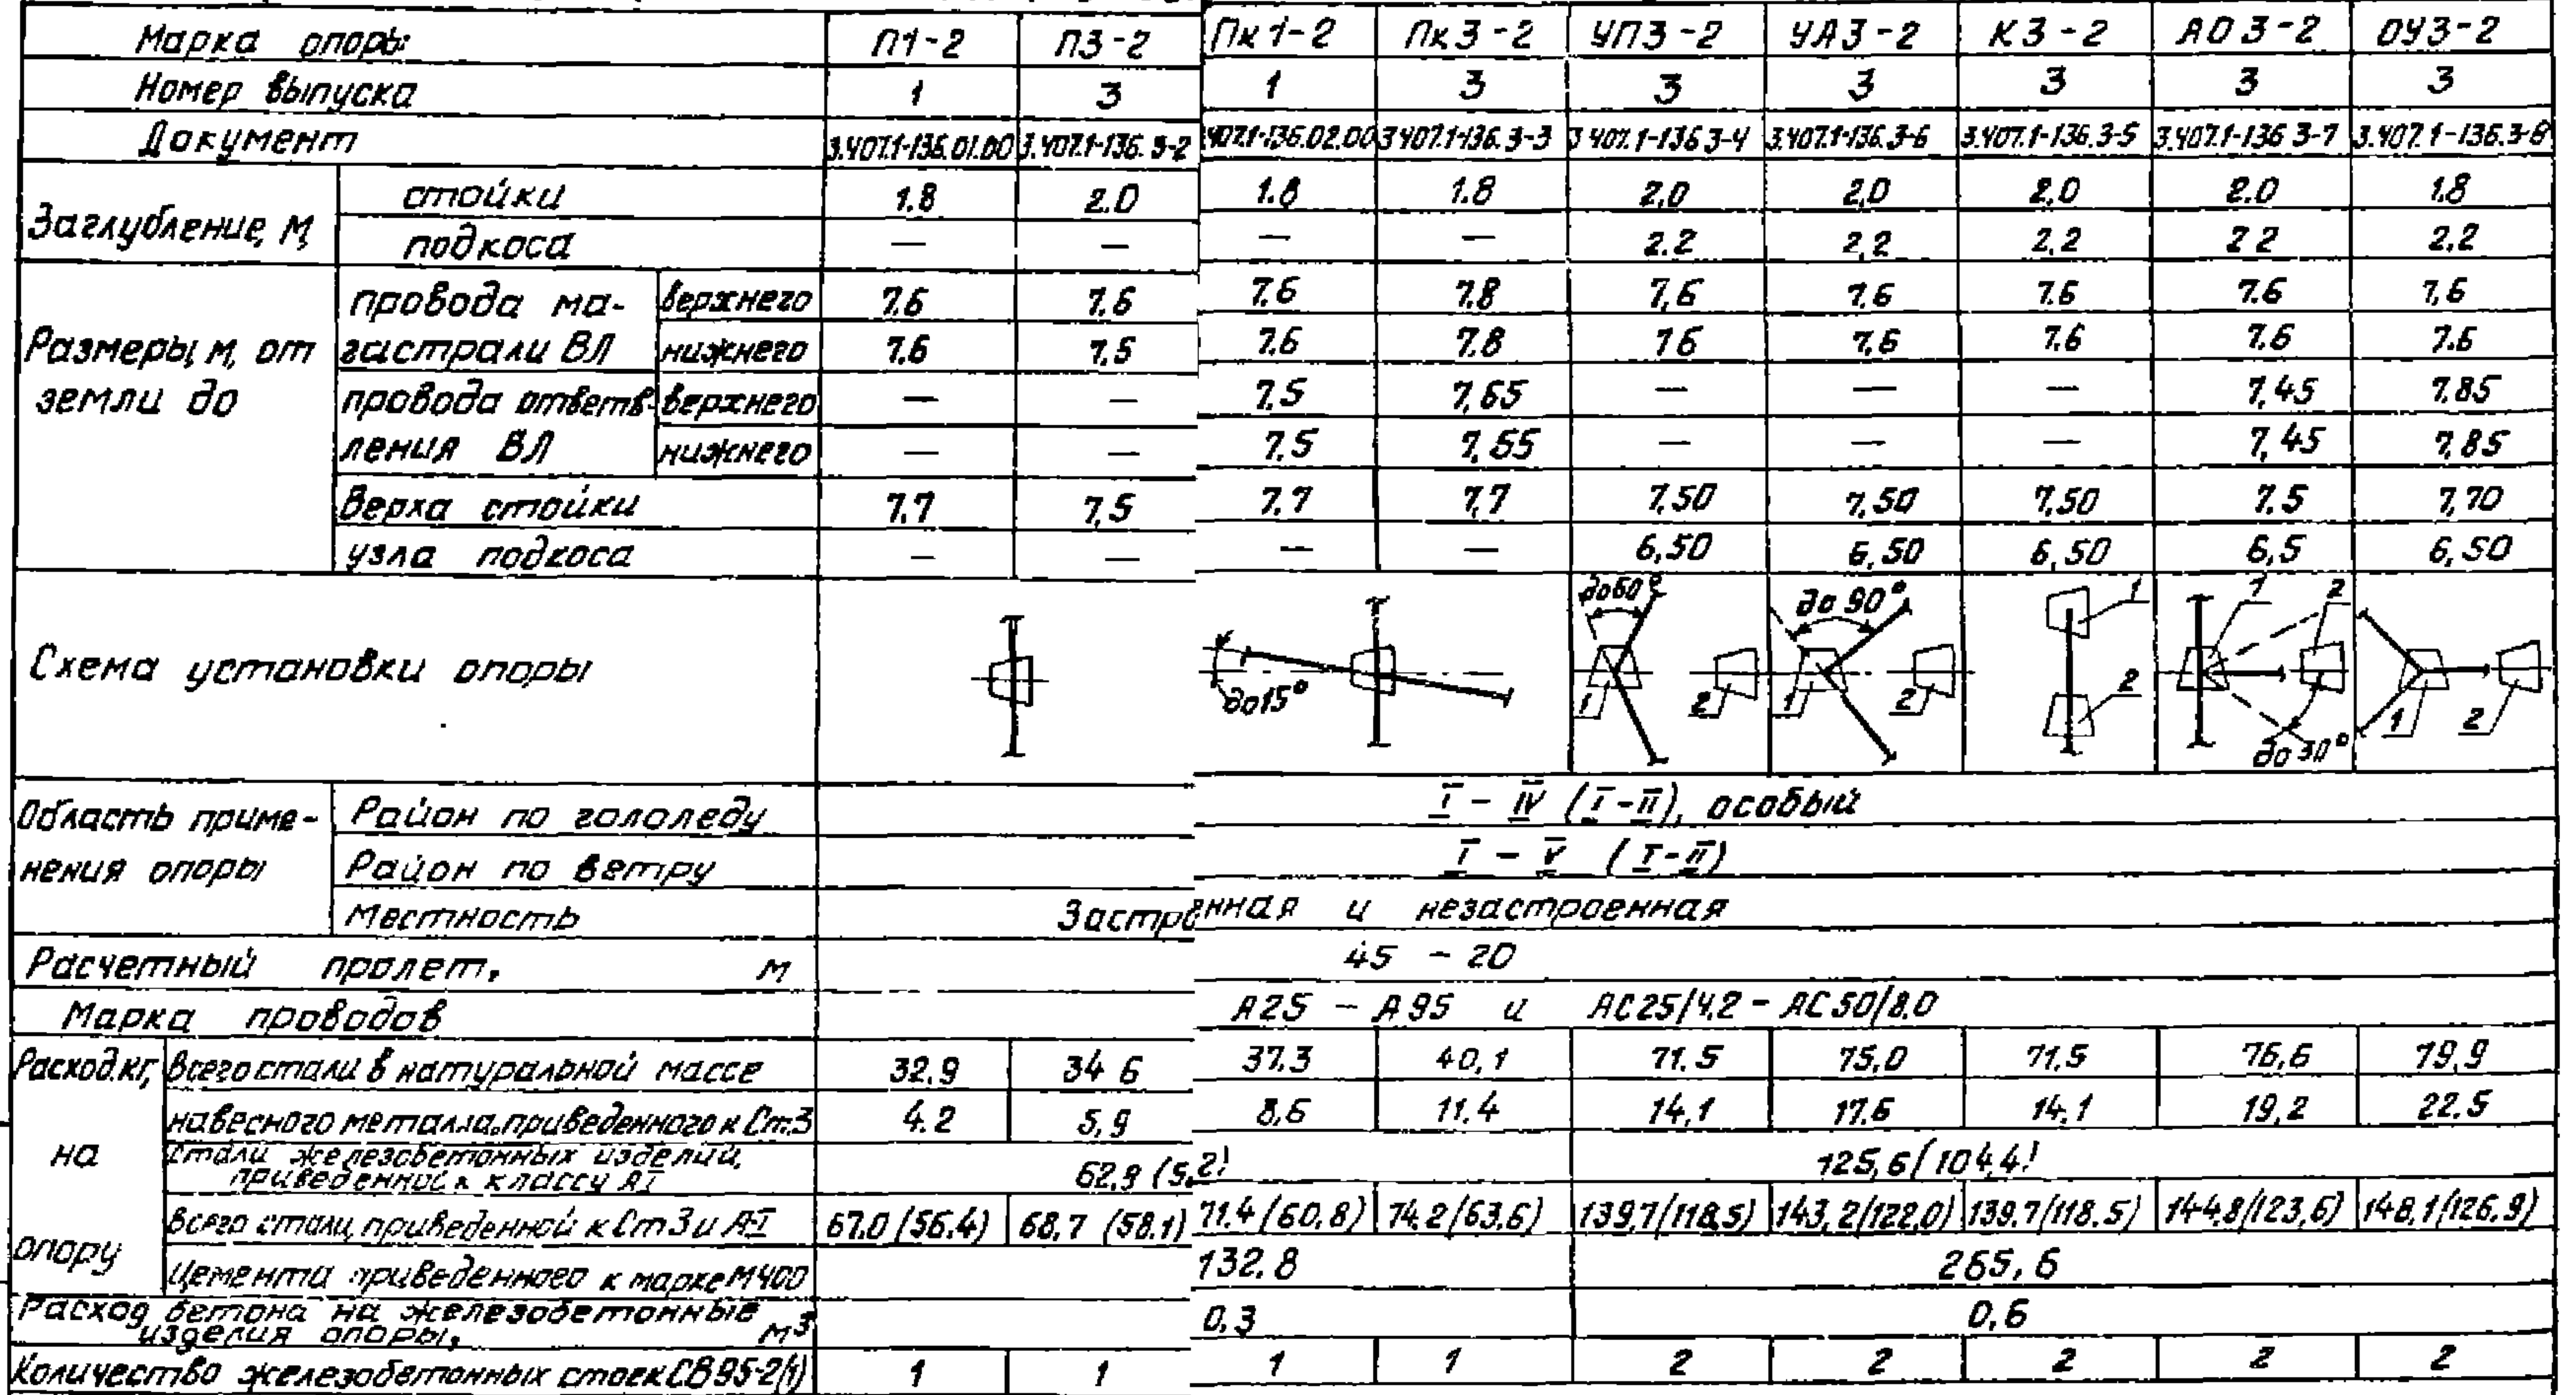 Марка опоры П1-2 П3-2 Пк1-2 Пк3-2 УП3-2 УА3-2 К3-2 АО3-2 ОУ3-2
Номер выпуска 1 3 1 3 3 3 3 3 3
Документ 3.407.1-136.01.00 3.407.1-136.3-2 407.1-136.02.00 3.407.1-136.3-3 3.407.1-136 3-4 3.407.1-136.3-6 3.407.1-136.3-5 3.407.1-136 3-7 3.407.1-136.3-8
Заглубление, м стойки 1.8 2.0 1.8 1.8 2.0 2,0 2.0 2.0 1.8
подкоса — — — — 2.2 2,2 2.2 2 2 2.2
Размеры, м, от земли до провода магистрали ВЛ верхнего 7.6 7.6 7.6 7.8 7,6 7.6 7.6 7.6 7,6
нижнего 7.6 7.5 7.6 7.8 7 6 7,6 7.6 7.6 7.6
провода ответвления ВЛ верхнего — — 7,5 7,65 — — — 7,45 7.85
нижнего — — 7,5 7,65 — — — 7,45 7,85
Верха стойки 7.7 7,5 7,7 7,7 7,50 7,50 7,50 7.5 7,70
узла подкоса — — — — 6,50 6,50 6,50 6,5 6,50
Схема установки опоры
до 15°
до 60°
1 2
до 90°
1 2
1
2
1 2
до 30°
1 2
Область применения опоры Район по гололеду I – IV (I-II), особый
Район по ветру I – V (I-II)
Местность Застроенная и незастроенная
Расчетный пролет, м 45 – 20
Марка проводов А25 – А95 и АС25/4.2 – АС50/8.0
Расход, кг, на опору
всего стали в натуральной массе 32.9 34 6 37.3 40,1 71.5 75,0 71,5 76,6 79,9
навесного металла, приведенного к Ст.3 4.2 5,9 8,6 11.4 14,1 17.6 14,1 19,2 22.5
Стали железобетонных изделий, приведенной к классу АI 62,8 (5,2) 125,6 (104,4)
всего стали, приведенной к Ст3 и А-I 67.0 (56.4) 68,7 (58.1) 71.4 (60,8) 74.2 (63.6) 139,7 (118,5) 143,2 (122,0) 139.7 (118.5) 144,8 (123,6) 148,1 (126,9)
Цемента приведенного к марке М400 132,8 265,6
Расход бетона на железобетонные изделия опоры, м³ 0,3 0,6
Количество железобетонных стоек СВ95-2(1) 1 1 1 1 2 2 2 2 2